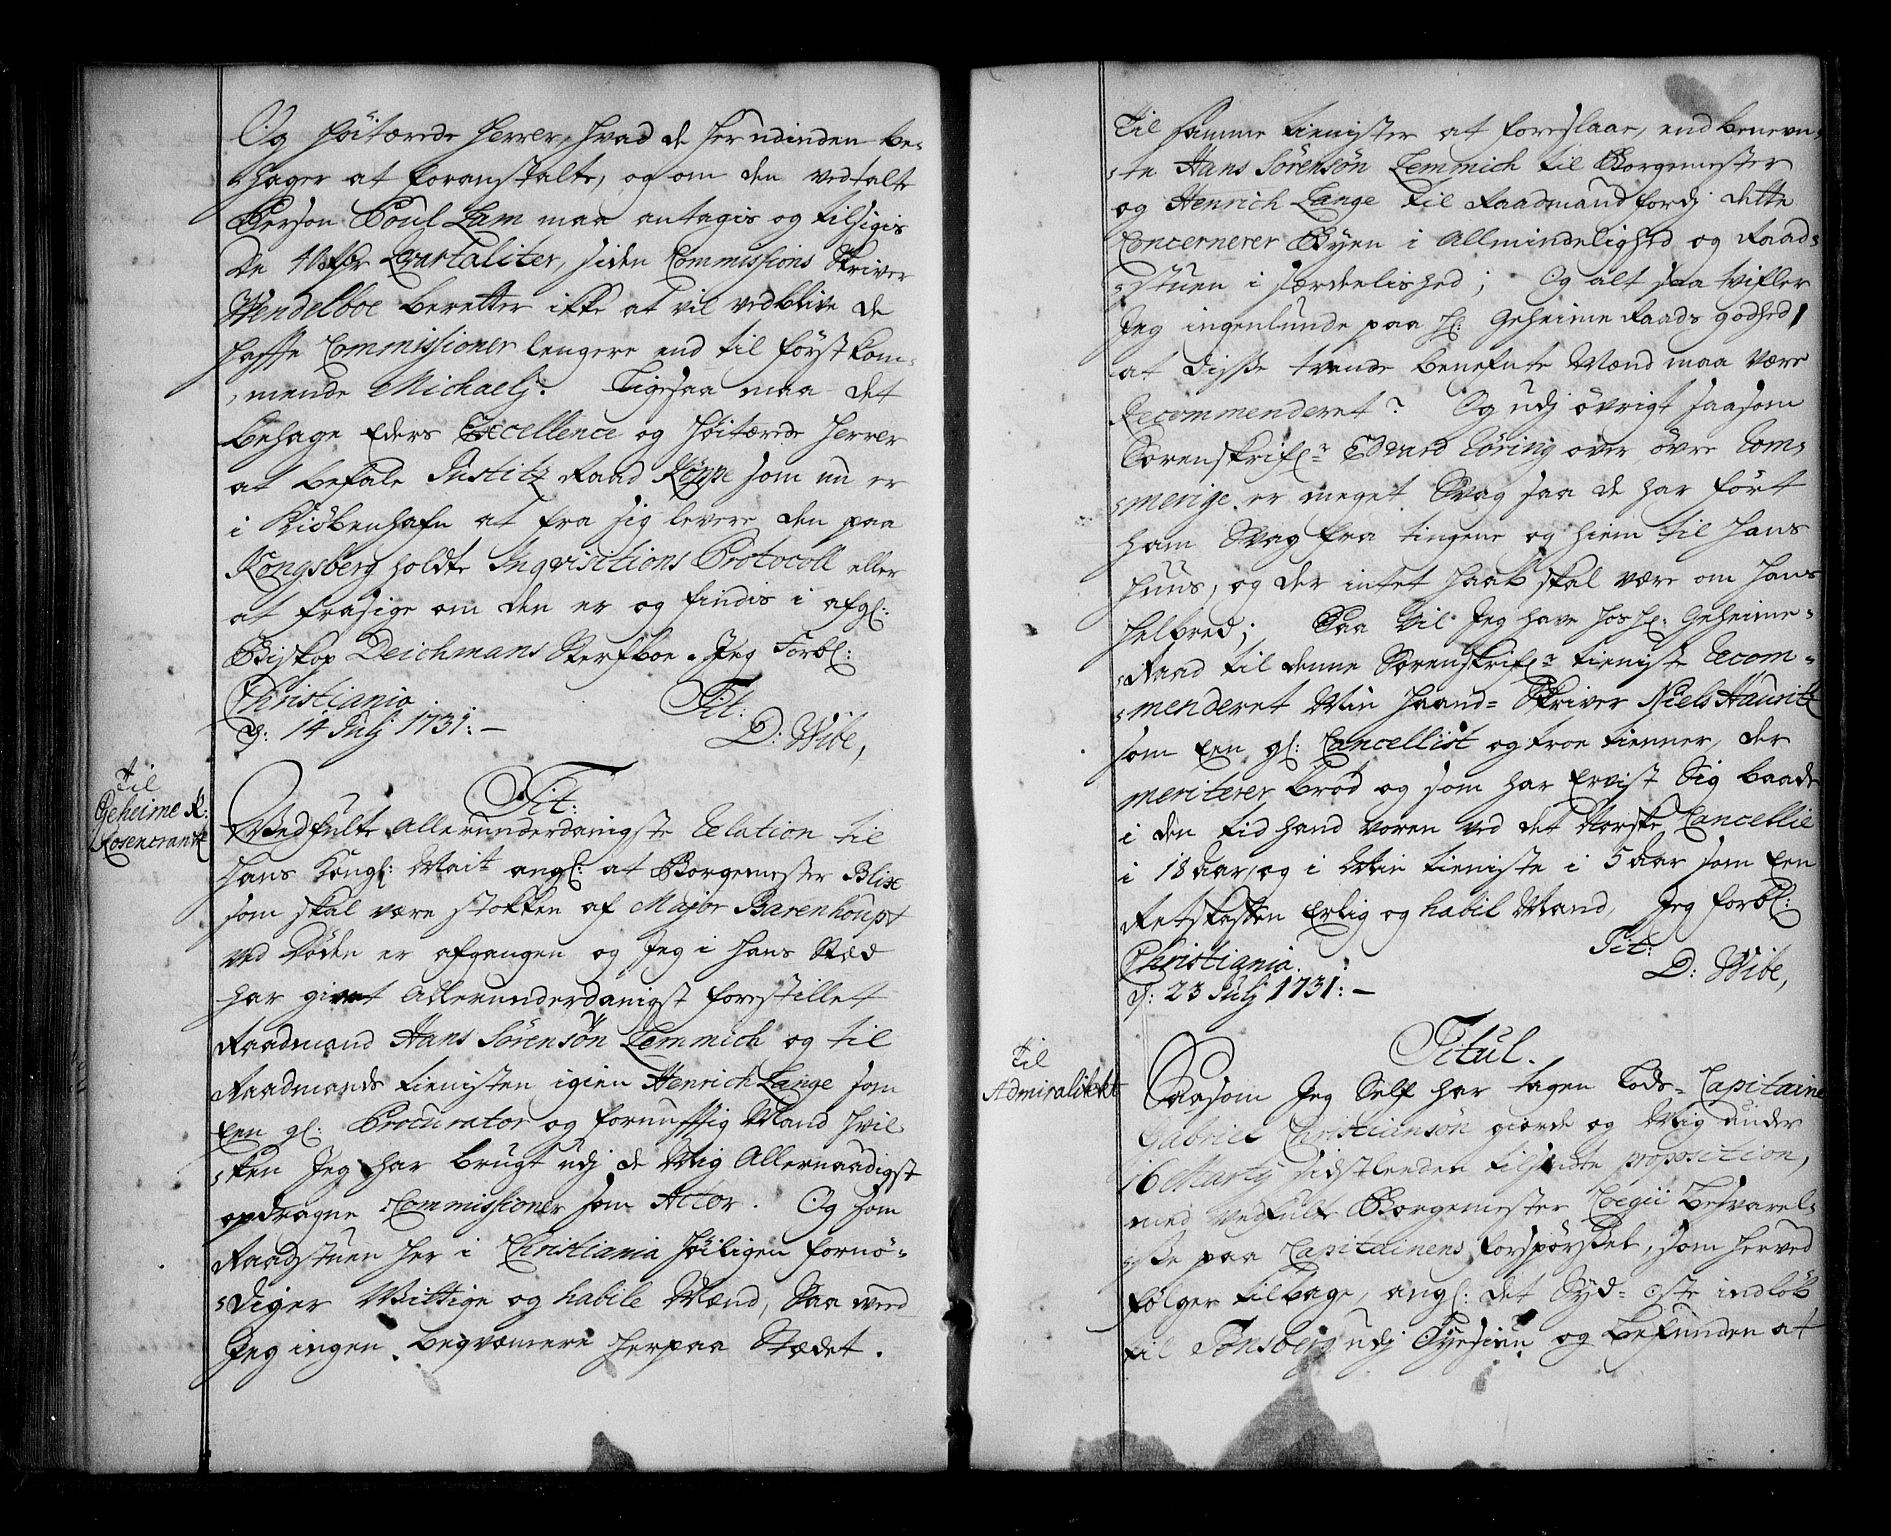 Og Høitærede Herrer, hvad de herudinden be-
hager at foranstalte, og om den vedtalte
Person Poul Lam maa antagis og tilsigis
de 40 Rdr Qvartaliter, siden Commissions Skriver
Wendelboe beretter ikke at vil vedblive de
haffte Commissioner lengere end til førstkom-
mende Michaelj. Ligesaa maa det
behage Eders Excellence og Høitærede Herrer
at befale Justitz Raad Køppe som nu er
i Kiøbenhafn at fra sig levere den paa
Kongsberg holdte Inqvisitions Protocoll eller
at frasige om den er og findis i afgl:
Biskop Deichmans Sterfboe. Jeg Forbl:
Christiania Tit:
d: 14 Julj 1731:- D: Wibe,
Til
Geheime R:
Rosencrantz
Tit:
Vedfulte Allerunderdanigste Relation til
Hans Kongl: Mait angl: at Borgemester Blix
som skal være stokken af Major Barenhoupt
ved Døden er afgangen og Jeg i hans Sted
har givet Allerunderdanigst forestillet
Raadmand Hans Sørensøn Lemmich og til
Raadmands tienisten igien Henrich Lange som
Een gl: Procurator og fornufftig Mand hvil-
ken Jeg har brugt udj de Mig Allernaadigst
opdragne Commissioner som Actor. Og som
Raadstuen her i Christiania høiligen fornø-
diger Wittige og habile Mænd, Saa veed
Jeg ingen beqvemmere herpaa Stædet.
Til samme tienister at foreslaae, end benevn-
te Hans Sørensøn Lemmich til Borgemester
og Henrich Lange til Raadmand fordj dette
Concernerer Byen i Allmindelighed og Raad-
stuen i særdeelished; Og alt saa tvifler
Jeg ingenlunde paa H: Geheime Raads godhed
at disse tvende benefnte Mænd maa være
Recommenderet? Og udj øvrigt saasom
Sorenskrifr Edvard Røring over øvre Rom-
merige er meget Svag saa de har ført
ham Svag fra tingene og hiem til hans
huus, og der intet haab skal være om hans
helbred; Saa vil Jeg have hos H: Geheime-
Raad til denne Sorenskrifr tieniste Recom-
menderet Min haand-Skriver Niels Hauritz
som Een gl: Cancellist og troe tienner, der
meriterer brød og som har ervist Sig baade
i den tid hand voren ved det Norske Cancellie
i 18 Aar, og i Min tieniste i 5 Aar som Een
Retskaffen Erlig og habil Mand, Jeg forbl:
Christiania. Tit:
d: 23 Julj 1731:- D: Wibe,
Til
Admiralitetet
Titul.
Saasom Jeg Self har tagen Lods-Capitaine
Gabriel Christiansøn giorde og Mig under
16 Martij sidstleeden tilsendte proposition,
med vedfulte Borgemester Coegii besvarel-
se paa Capitainens forspørssel, som herved
følger tilbage, angl: det Syd-oste indløb
til Tønsberg udj Øyesiun og befunden at